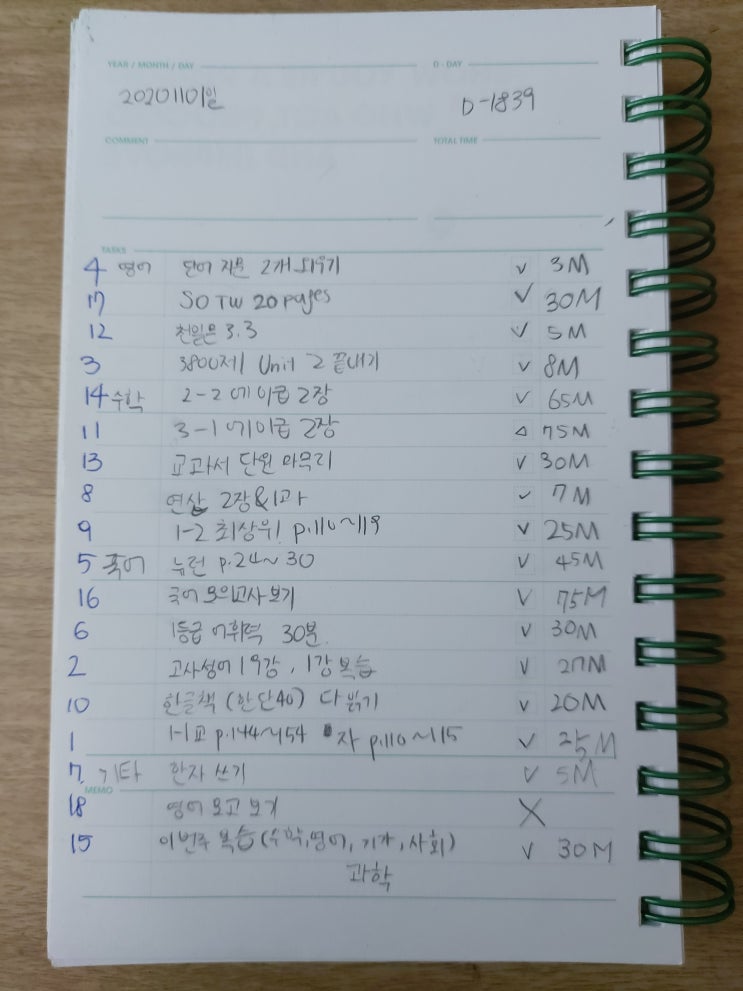 YEAR / MONTH / DAY D - DAY
20201101일 D-1839
COMMENT TOTAL TIME
TASKS
4 영어 단어 지문 2개 외우기 ✓ 3M
17 SOTW 20 pages ✓ 30M
12 천일문 3.3 ✓ 5M
3 3800제 Unit 2 끝내기 ✓ 8M
14 수학 2-2 에이급 2장 ✓ 65M
11 3-1 에이급 2장 △ 75M
13 교과서 단원 마무리 ✓ 30M
8 연산 2장&1과 ✓ 7M
9 1-2 최상위 p.110~119 ✓ 25M
5 국어 뉴런 p.24~30 ✓ 45M
16 국어 모의고사 보기 ✓ 75M
6 1등급 어휘력 30분 ✓ 30M
2 고사성어 19강, 1강 복습 ✓ 27M
10 한글책 (한단40) 다 읽기 ✓ 20M
1 1-1 교 p.144~154 자 p.110~115 ✓ 25M
7. 기타 한자 쓰기 ✓ 5M
MEMO
18 영어 모고 보기 X
15 이번주 복습 (수학, 영어, 기가, 사회) ✓ 30M
과학